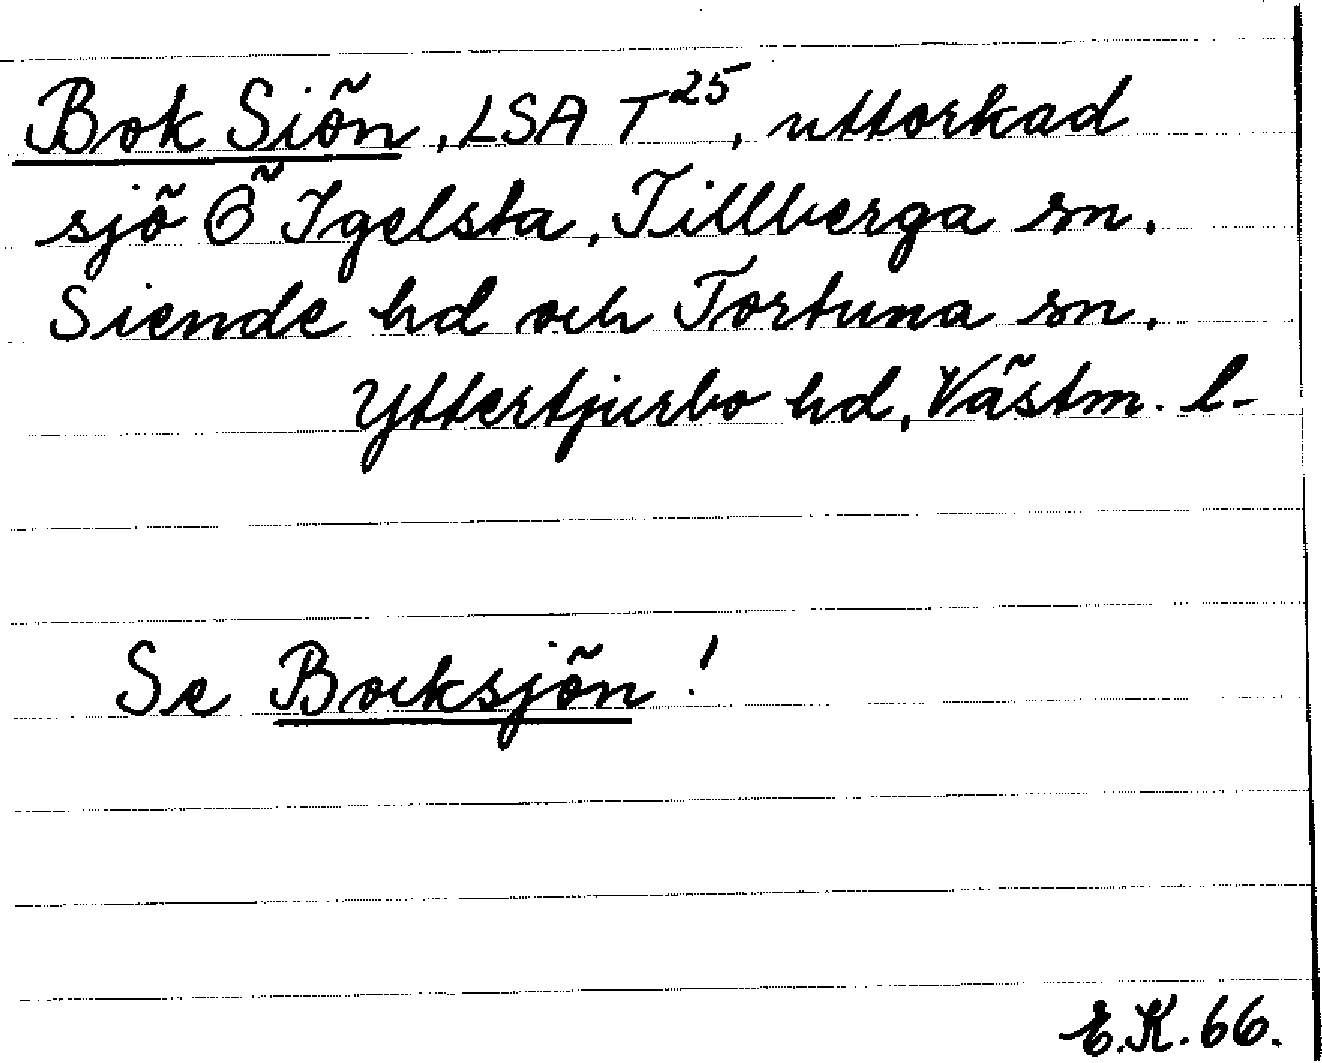 Bok Siön, LSA T25, uttorkad
sjö Ö Igelsta, Tillberga sn.
Siende hd och Tortuna sn.
Yttertjurbo hd, Västm. l.
Se Bocksjön!
E.K. 66.